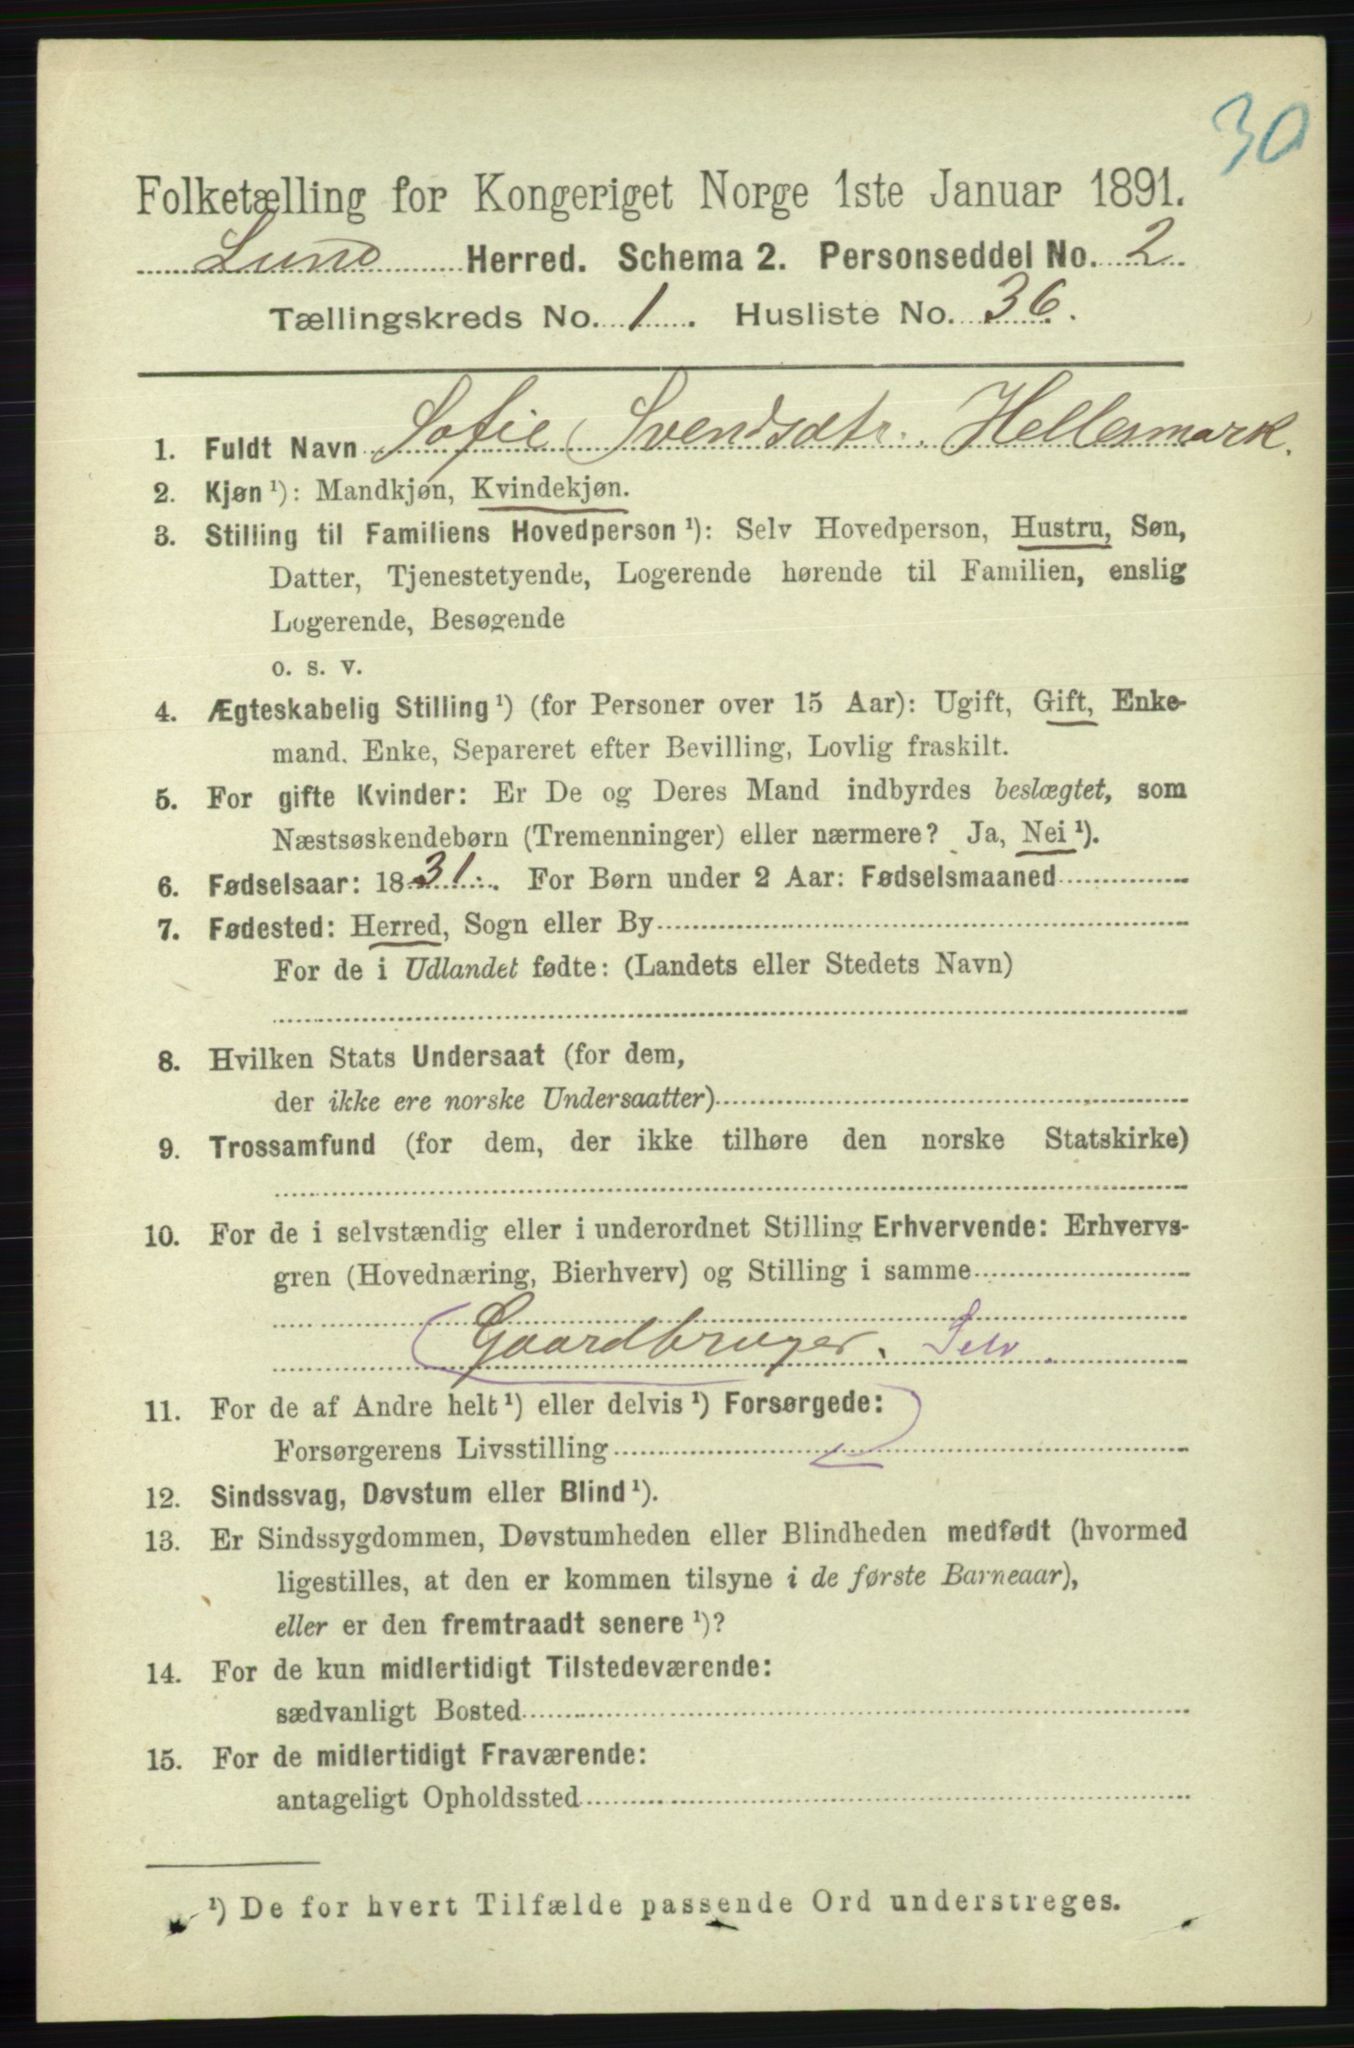 30
Folketælling for Kongeriget Norge 1ste Januar 1891.
Lund Herred. Schema 2. Personseddel No. 2
Tællingskreds No. 1. Husliste No. 36.
1. Fuldt Navn Sofie Svendsdtr. Hellesmark.
2. Kjøn ¹): Mandkjøn, Kvindekjøn.
3. Stilling til Familiens Hovedperson ¹): Selv Hovedperson, Hustru, Søn,
Datter, Tjenestetyende, Logerende hørende til Familien, enslig
Logerende, Besøgende
o. s. v.
4. Ægteskabelig Stilling ¹) (for Personer over 15 Aar): Ugift, Gift, Enke-
mand, Enke, Separeret efter Bevilling, Lovlig fraskilt.
5. For gifte Kvinder: Er De og Deres Mand indbyrdes beslægtet, som
Næstsøskendebørn (Tremenninger) eller nærmere? Ja, Nei ¹).
6. Fødselsaar: 1831. For Børn under 2 Aar: Fødselsmaaned
7. Fødested: Herred, Sogn eller By
For de i Udlandet fødte: (Landets eller Stedets Navn)
8. Hvilken Stats Undersaat (for dem,
der ikke ere norske Undersaatter)
9. Trossamfund (for dem, der ikke tilhøre den norske Statskirke)
10. For de i selvstændig eller i underordnet Stilling Erhvervende: Erhvervs-
gren (Hovednæring, Bierhverv) og Stilling i samme
Gaardbruger. Selv.
11. For de af Andre helt ¹) eller delvis ¹) Forsørgede:
Forsørgerens Livsstilling
12. Sindssvag, Døvstum eller Blind ¹).
13. Er Sindssygdommen, Døvstumheden eller Blindheden medfødt (hvormed
ligestilles, at den er kommen tilsyne i de første Barneaar),
eller er den fremtraadt senere ¹)?
14. For de kun midlertidigt Tilstedeværende:
sædvanligt Bosted
15. For de midlertidigt Fraværende:
antageligt Opholdssted
¹) De for hvert Tilfælde passende Ord understreges.